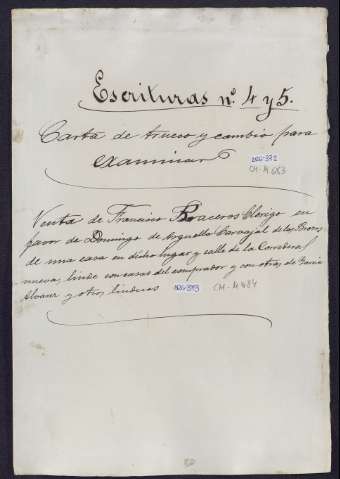 Escrituras nº. 4 y 5.
Carta de trueco y cambio para
examinar
CM-A 483
Venta de Francisco Braceros Clérigo en
favor de Domingo de Arguello Carvajal de los
de una casa en dicho lugar y calle de la Corredera
nueva, linde con casas del comprador y con otras de
Alvarez y otros linderos
CM-A 484